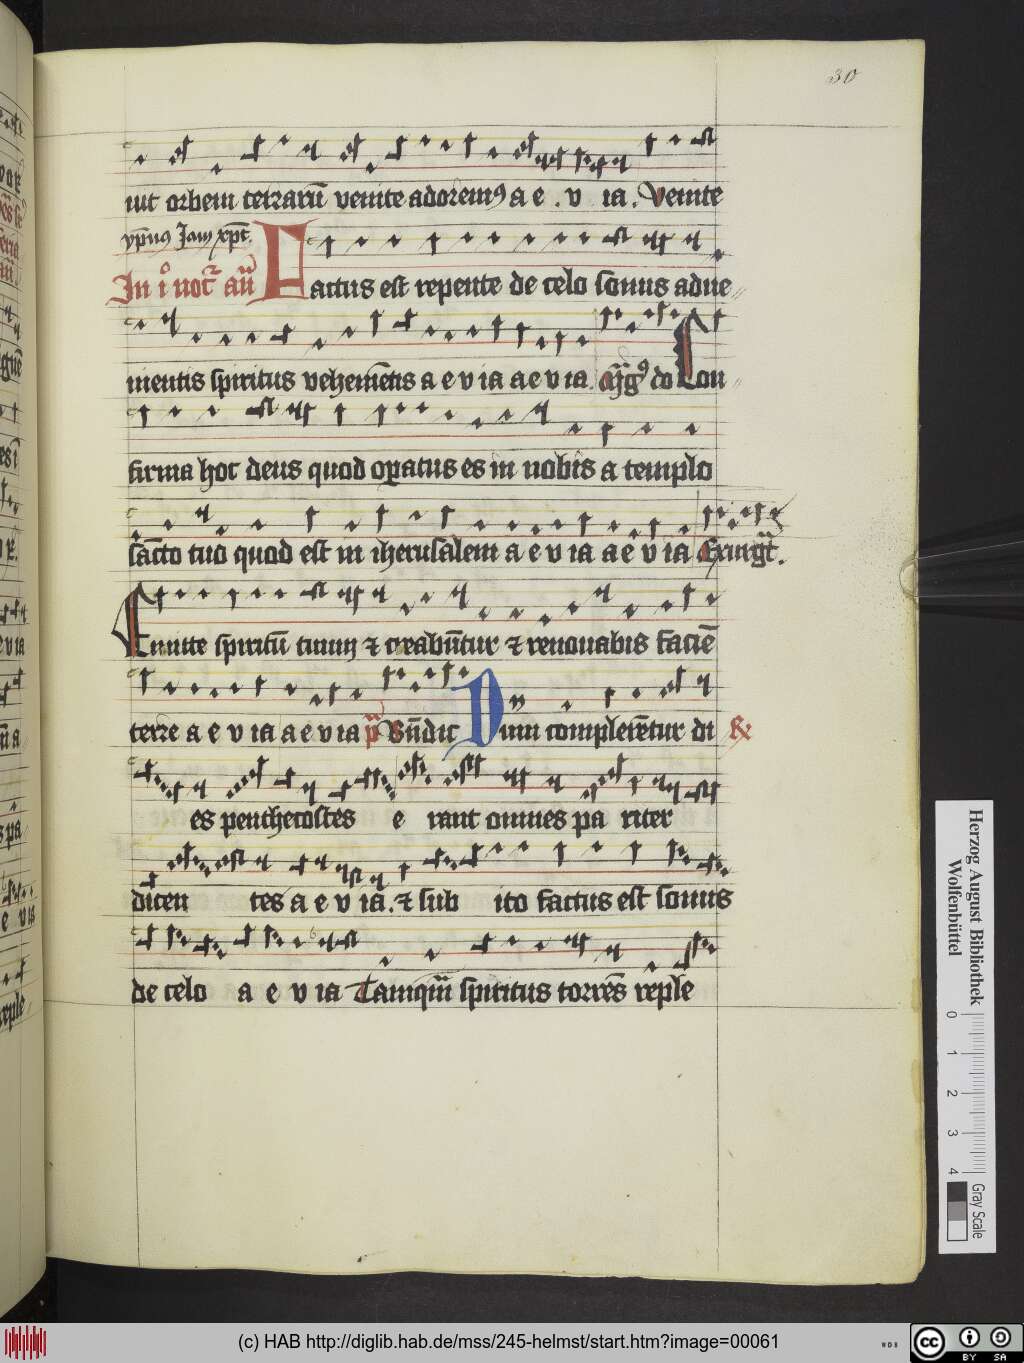 30
uit orbem terrarū venite adoremꝰ a e . v ia . Venite
ypnꝰ Jam xpc̄.
In i noct̄ añ Factus est repente de celo sonus adue
nientis spiritus vehemētis a e v ia a e v ia. do Con
firma hoc deus quod opatus es in nobis a templo
sācto tuo quod est in iherusalem a e v ia a e v ia Exurgat̄.
Emitte spiritū tuum et creabūtur et renouabis faciē
terre a e v ia a e v ia p̄ Bn̄dic Dum complerētur di
es penthecostes e rant omnes pa riter
dicen tes a e v ia. et sub ito factus est sonus
de celo a e v ia Tamquā spiritus torrēs reple
Herzog August Bibliothek
Wolfenbüttel
0 1 2 3 4
Gray Scale
(c) HAB http://diglib.hab.de/mss/245-helmst/start.htm?image=00061
WDB
cc BY SA